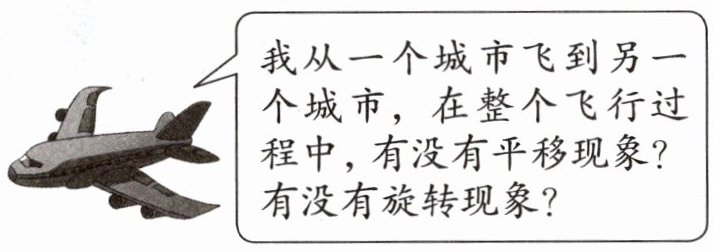 我从一个城市飞到另一
个城市，在整个飞行过
程中，有没有平移现象？
有没有旋转现象？